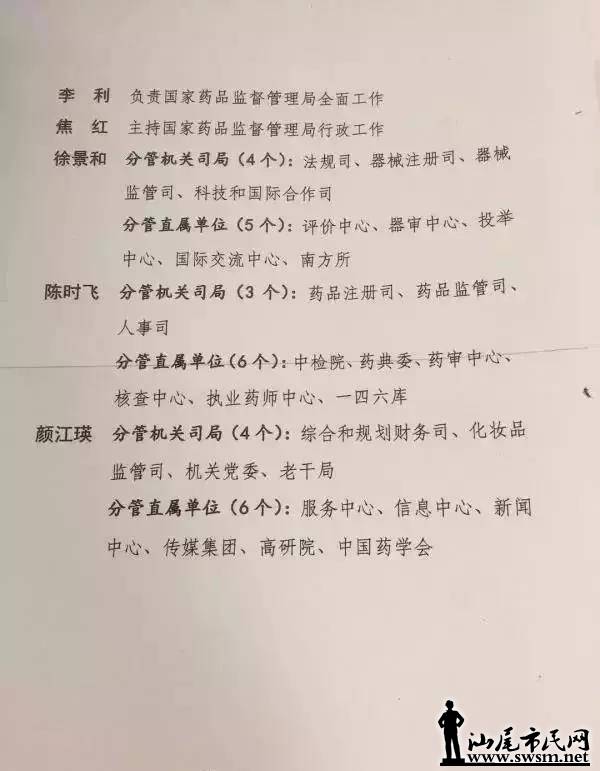 李 利 负责国家药品监督管理局全面工作
焦 红 主持国家药品监督管理局行政工作
徐景和 分管机关司局(4个):法规司、器械注册司、器械
监管司、科技和国际合作司
分管直属单位(5个):评价中心、器审中心、投举
中心、国际交流中心、南方所
陈时飞 分管机关司局(3个):药品注册司、药品监管司、
人事司
分管直属单位(6个):中检院、药典委、药审中心、
核查中心、执业药师中心、一四六库
颜江瑛 分管机关司局(4个):综合和规划财务司、化妆品
监管司、机关党委、老干局
分管直属单位(6个):服务中心、信息中心、新闻
中心、传媒集团、高研院、中国药学会
汕尾市民网
www.swsm.net